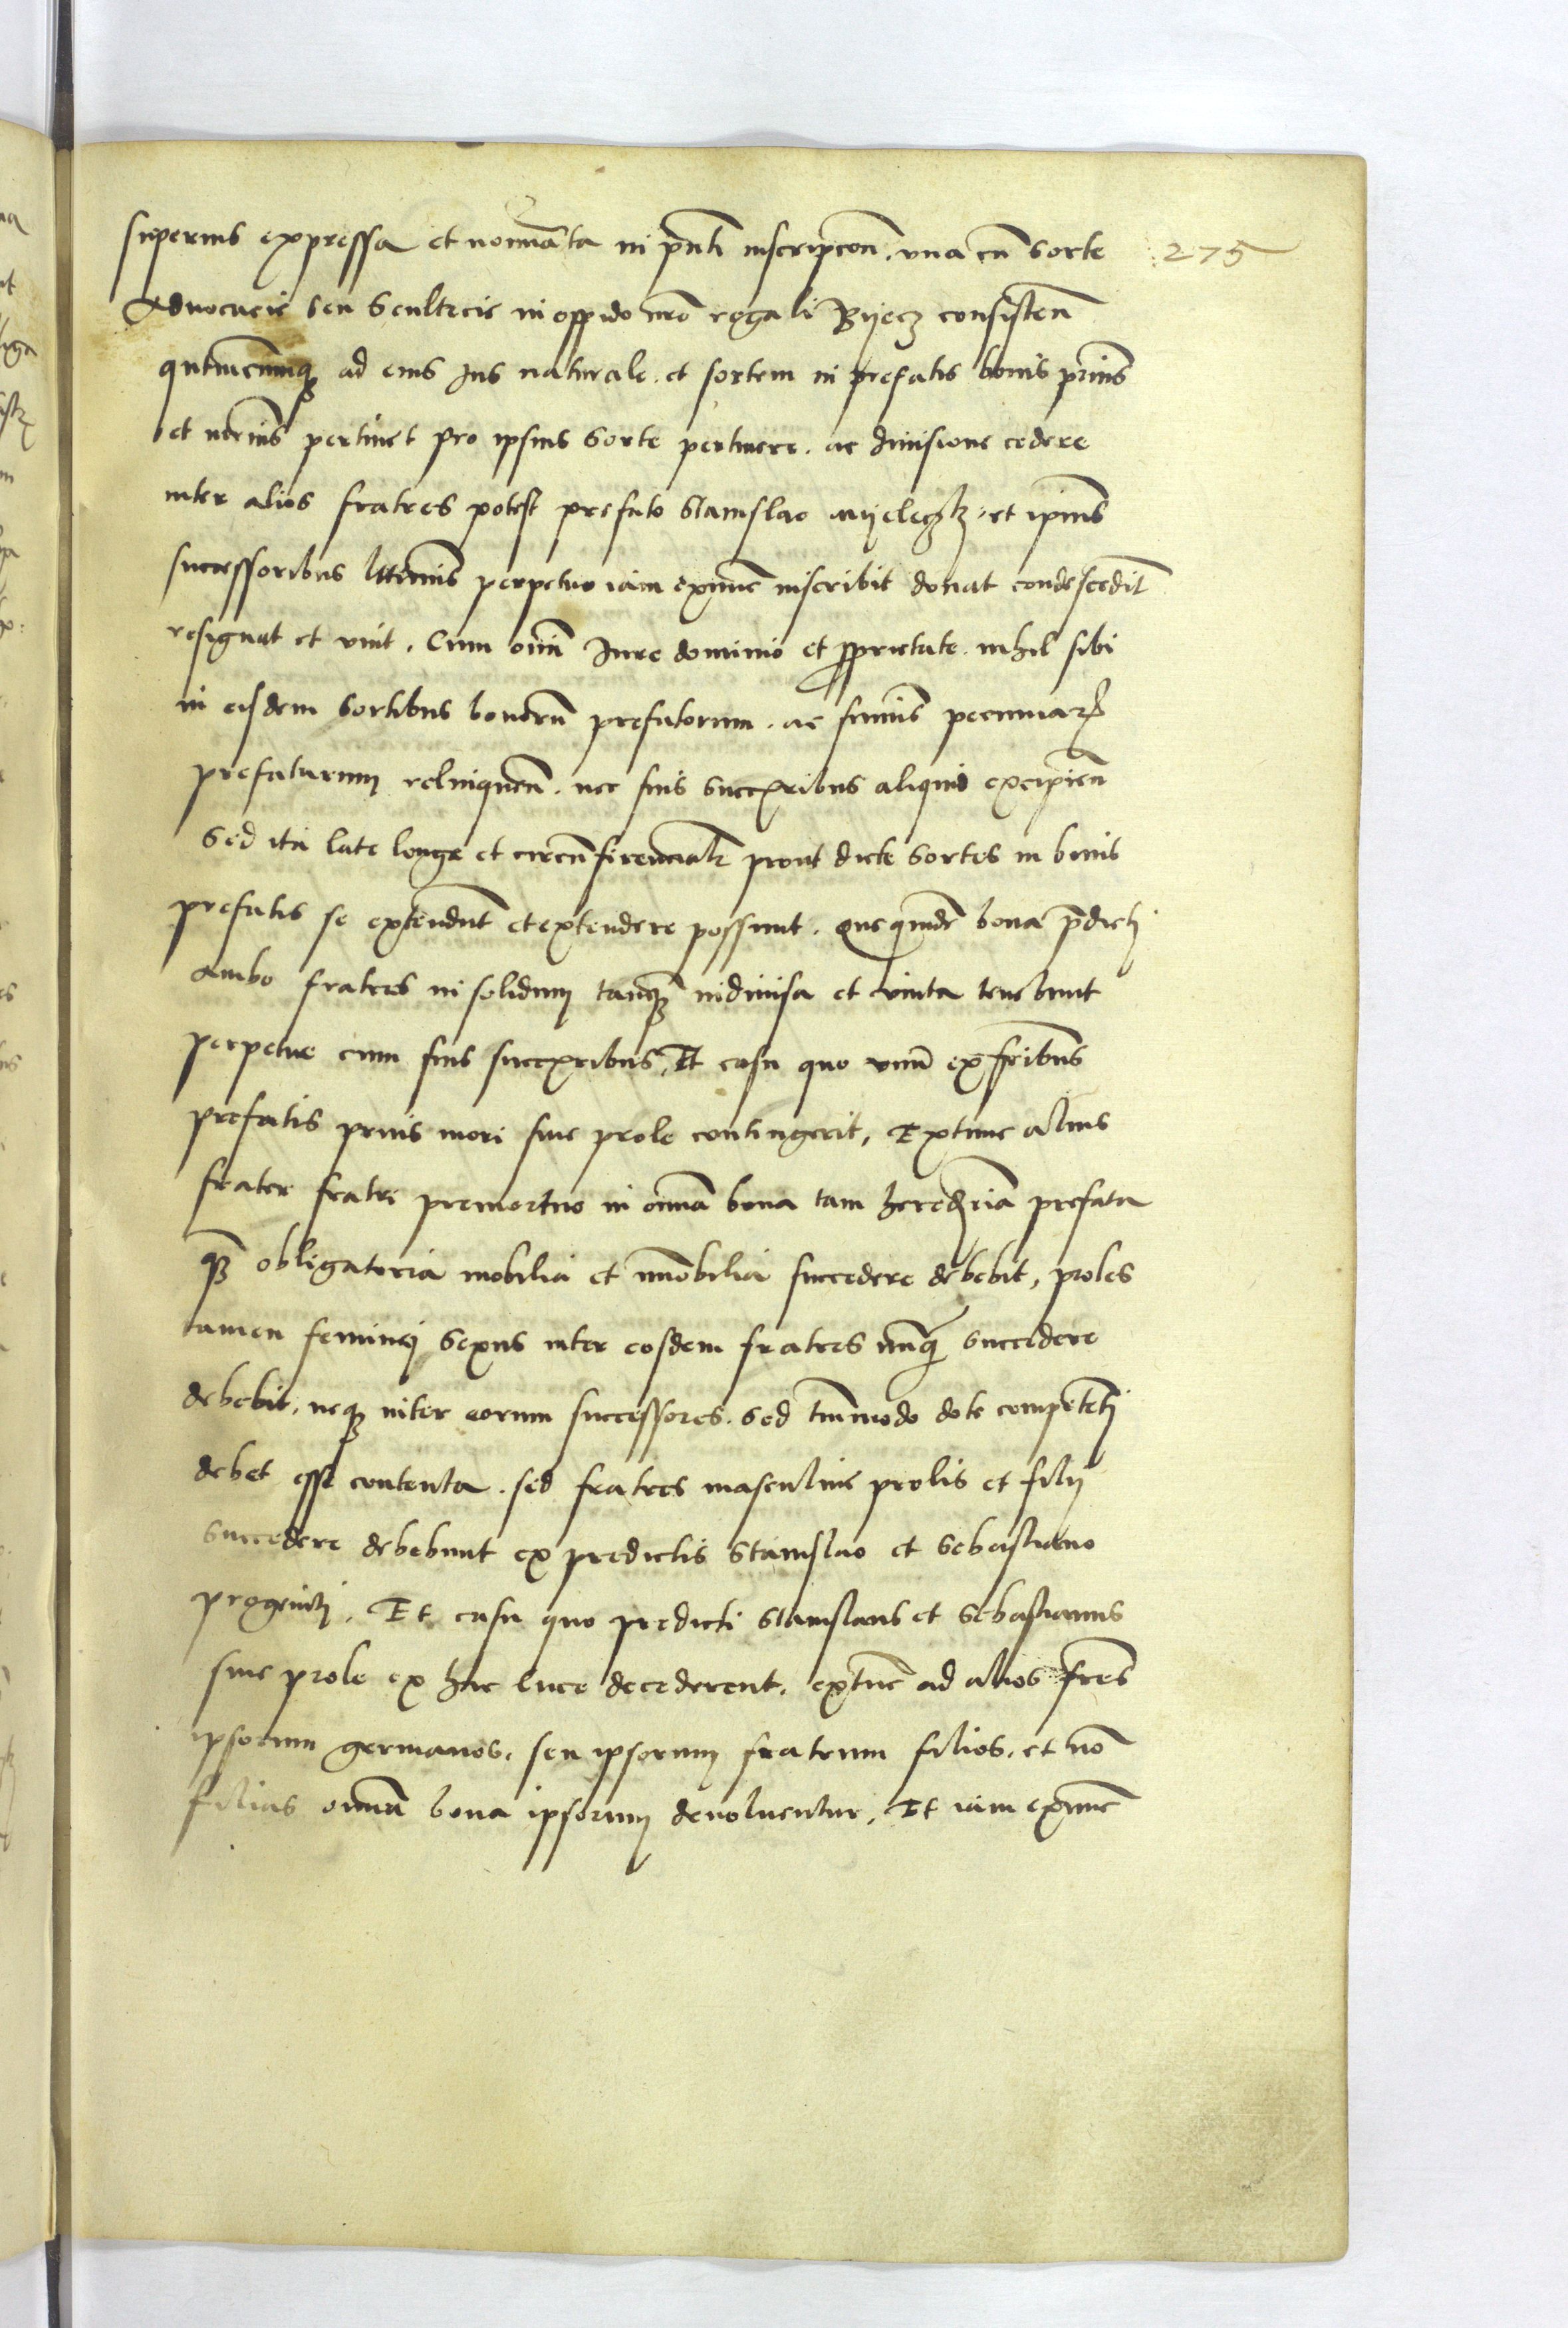 superius expressa et nominata in pnti inscripcon. vna cu sorte 275
Advocacie seu Scultecie in oppido nro regali Byecz consisten
qntmcunq ad eius Ius naturale. et sortem in prefatis bonis prius
et pertinet pro ipsius sorte pertinere. ac diuisione cedere
inter alios fratres potest prefato Stanislao et ipius
successoribus perpetuo iam exnunc inscribit donat condescedit
resignat et vnit. Cum omi Iure dominio et pprietate. nihil sibi
in eisdem sortibus bonoru prefatorum. ac sumis pecuniar
prefatarum relinquen. nec suis successoribus aliquid excipien
Sed ita late longe et circuferencialr prout dicte sortes in bonis
prefatis se extendut et extendere possunt. Que quide bona pdicti
ambo fratres in solidum tanq indiuisa et vnita tenebunt
perpetue cum suis successoribus, Et casu quo vnu ex fribus
prefatis prius mori sine prole contingerit, Extunc alius
frater fratre premortuo in omia bona tam hereditaria prefata
q obligatoria mobilia et imobilia succedere debebit, proles
tamen feminei sexus inter eosdem fratres nunq succedere
debebit, neq inter eorum successores. sed tmmodo dote competeti
debet esse contenta. sed fratres masculine prolis et filij
succedere debebunt ex predictis Stanislao et Sebastiano
progeniti. Et casu quo predicti Stanislaus et Sebastianus
sine prole ex hac luce decederent. extuc ad alios fres
ipsorum germanos. seu ipsorum fratrum filios. et no
filias omia bona ipsorum deuoluentur, Et iam exnunc